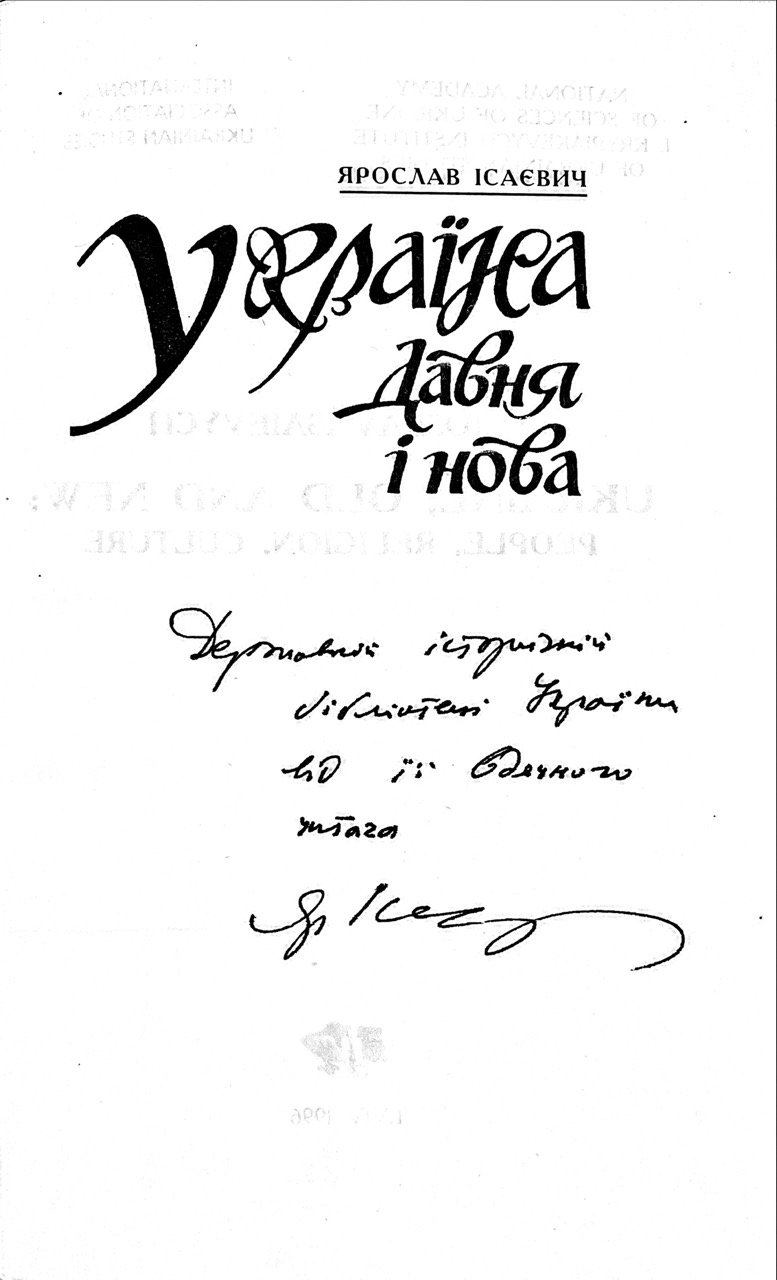 ЯРОСЛАВ ІСАЄВИЧ
Україна
давня
і нова
Державній історичній
бібліотеці України
від її вдячного
читача
Яр Іса